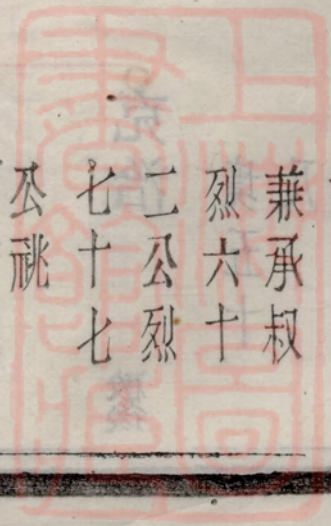 兼承叔
烈六十
二公烈
七十七
公祧